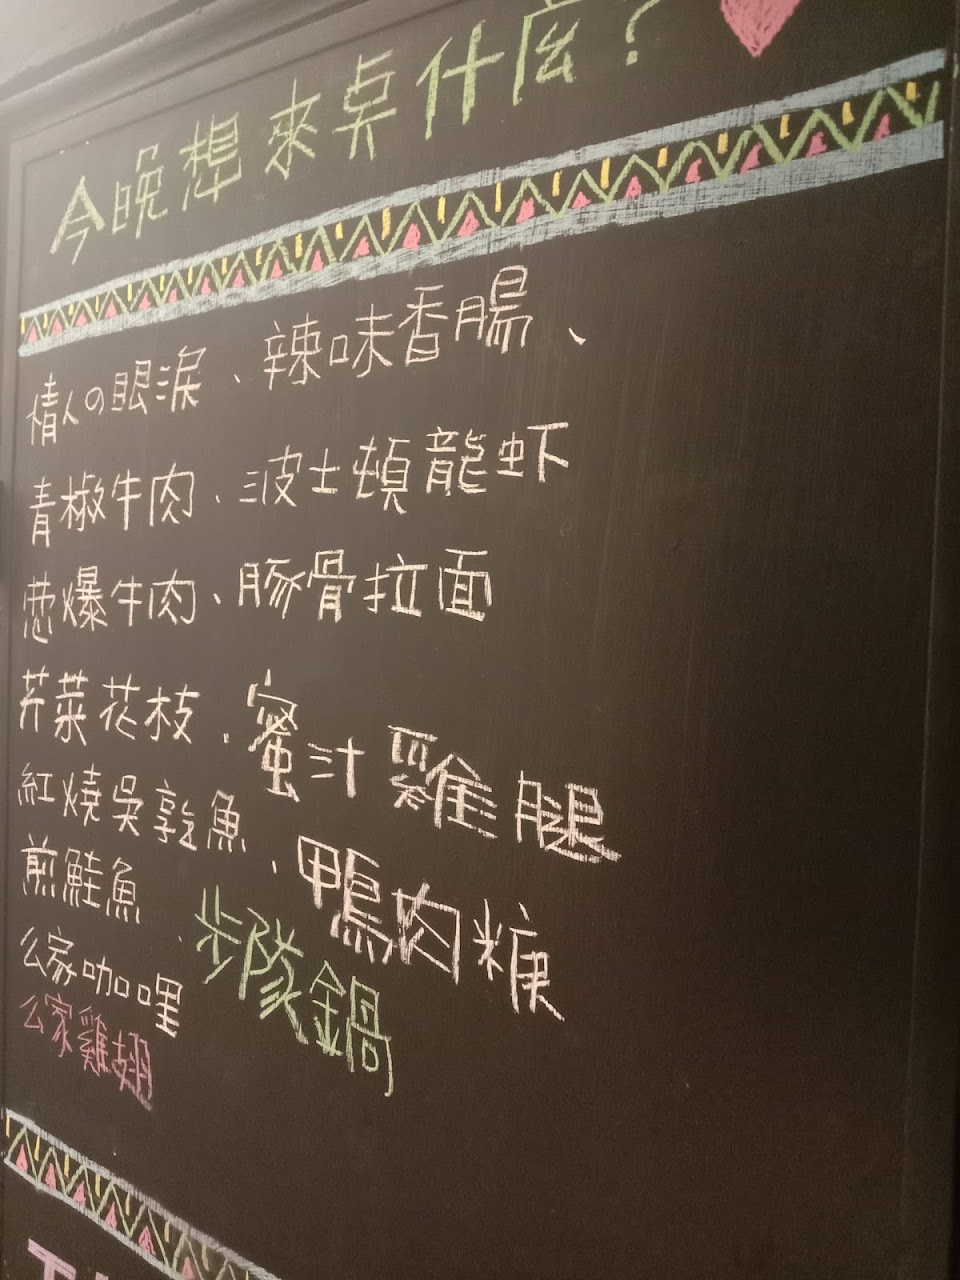 今晚想來点什庅?
情人の眼淚、辣味香腸、
青椒牛肉、波士頓龍蝦
葱爆牛肉、豚骨拉面
芹菜花枝、蜜汁雞腿
紅燒吳郭魚、鴨肉粳
煎鮭魚、步隊鍋
公家咖哩
公家雞翅